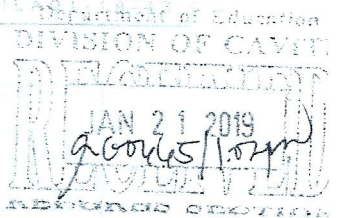 Department of Education
DIVISION OF CAVITE
RECEIVED
JAN 21 2019
RECORDS SECTION